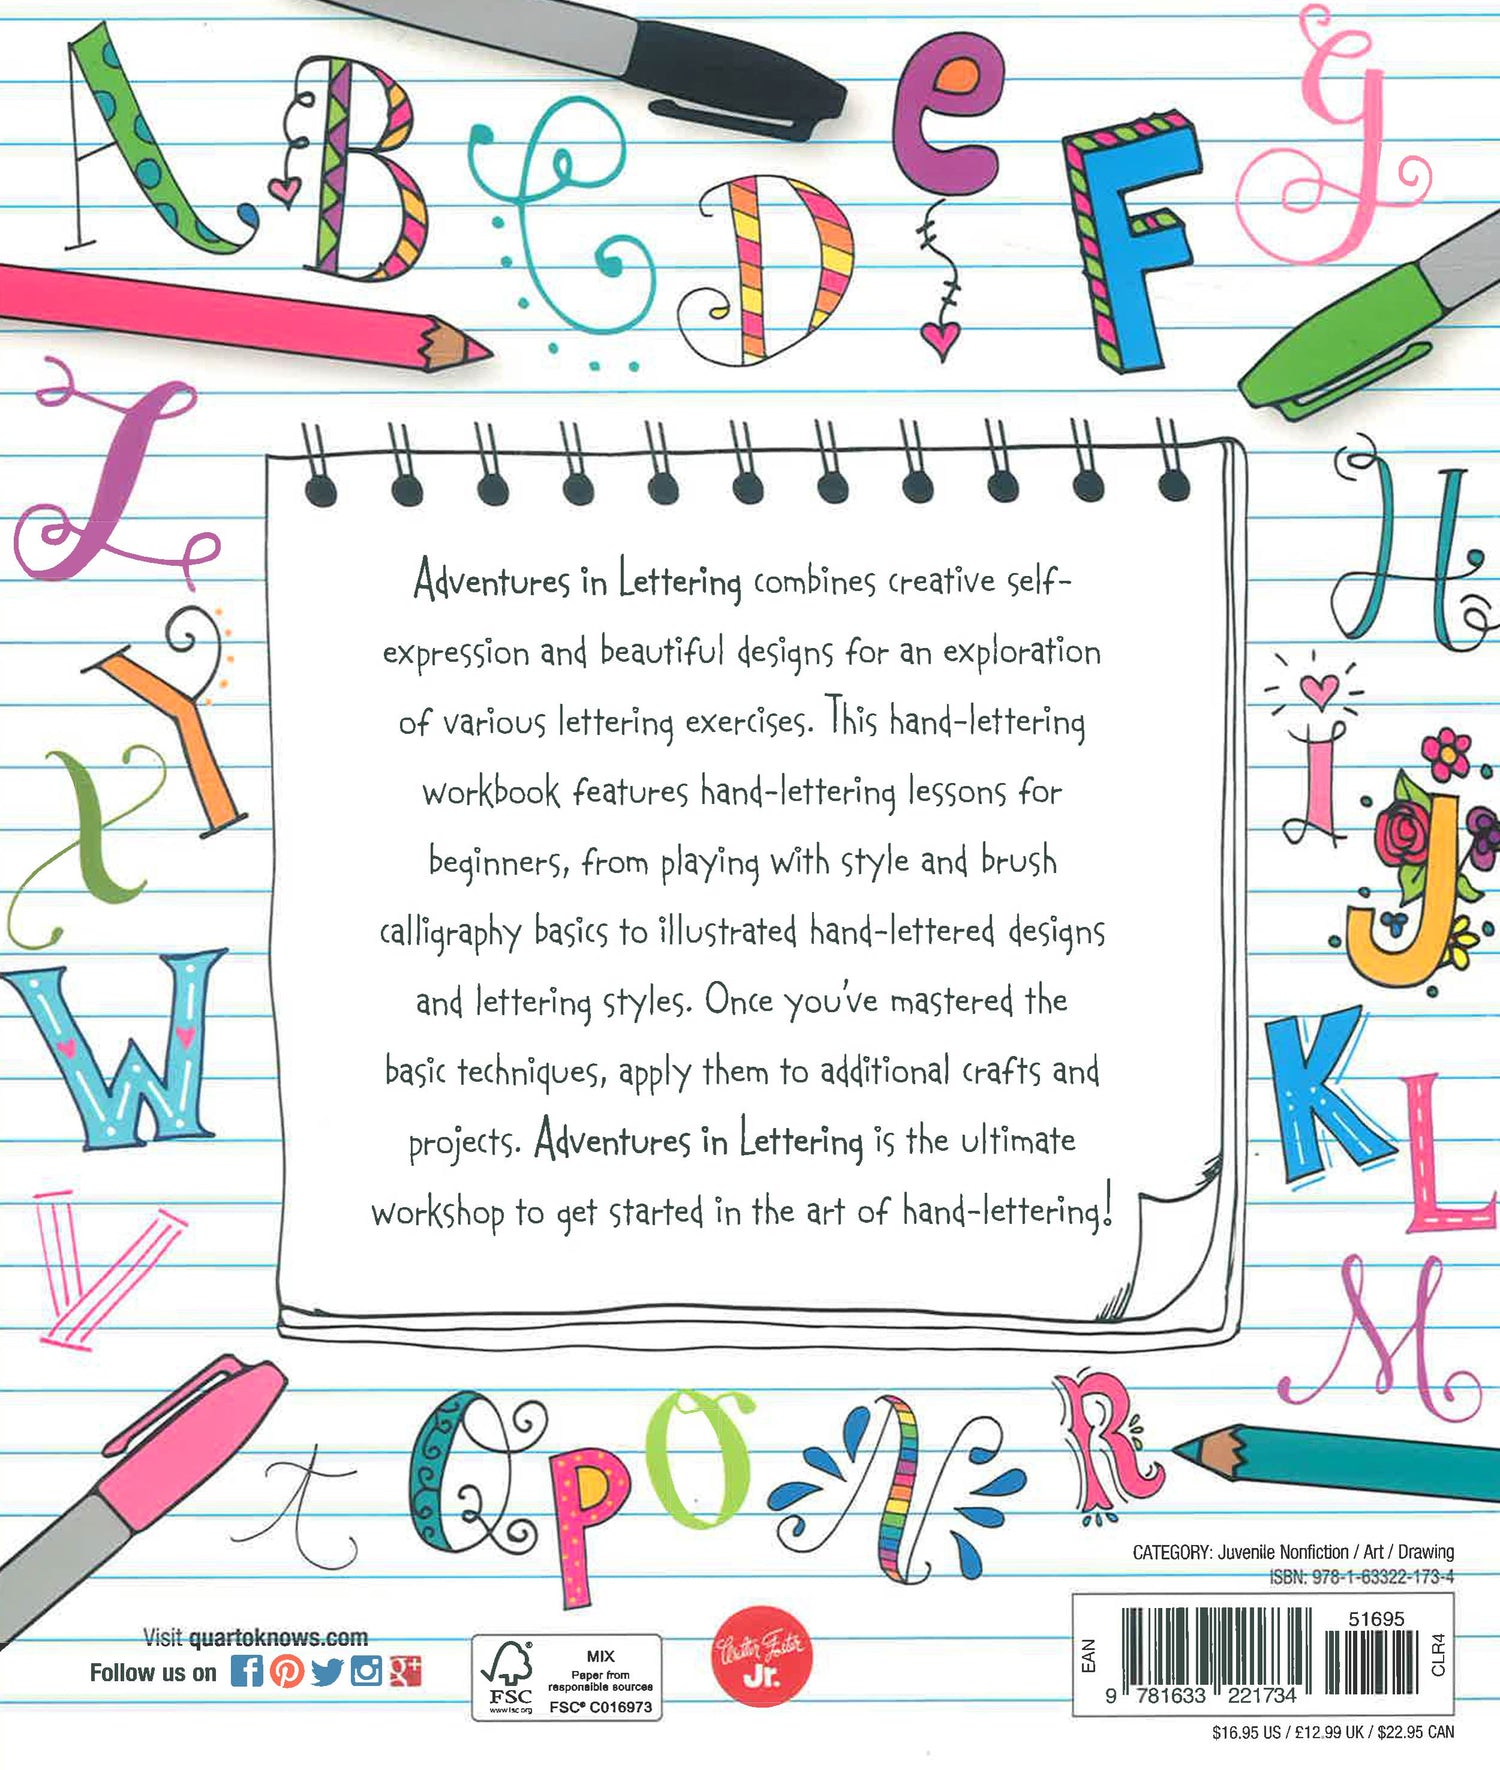 A B C D e F G
Z
Adventures in Lettering combines creative self-
expression and beautiful designs for an exploration
of various lettering exercises. This hand-lettering
workbook features hand-lettering lessons for
beginners, from playing with style and brush
calligraphy basics to illustrated hand-lettered designs
and lettering styles. Once you've mastered the
basic techniques, apply them to additional crafts and
projects. Adventures in Lettering is the ultimate
workshop to get started in the art of hand-lettering!
H
I
J
K
L
M
Y
X
W
V
t Q P O N R
CATEGORY: Juvenile Nonfiction / Art / Drawing
ISBN: 978-1-63322-173-4
Visit quartoknows.com
Follow us on
FSC
www.fsc.org
MIX
Paper from
responsible sources
FSC® C016973
Walter Foster
Jr.
EAN
9 781633 221734
51695
CLR4
$16.95 US / £12.99 UK / $22.95 CAN